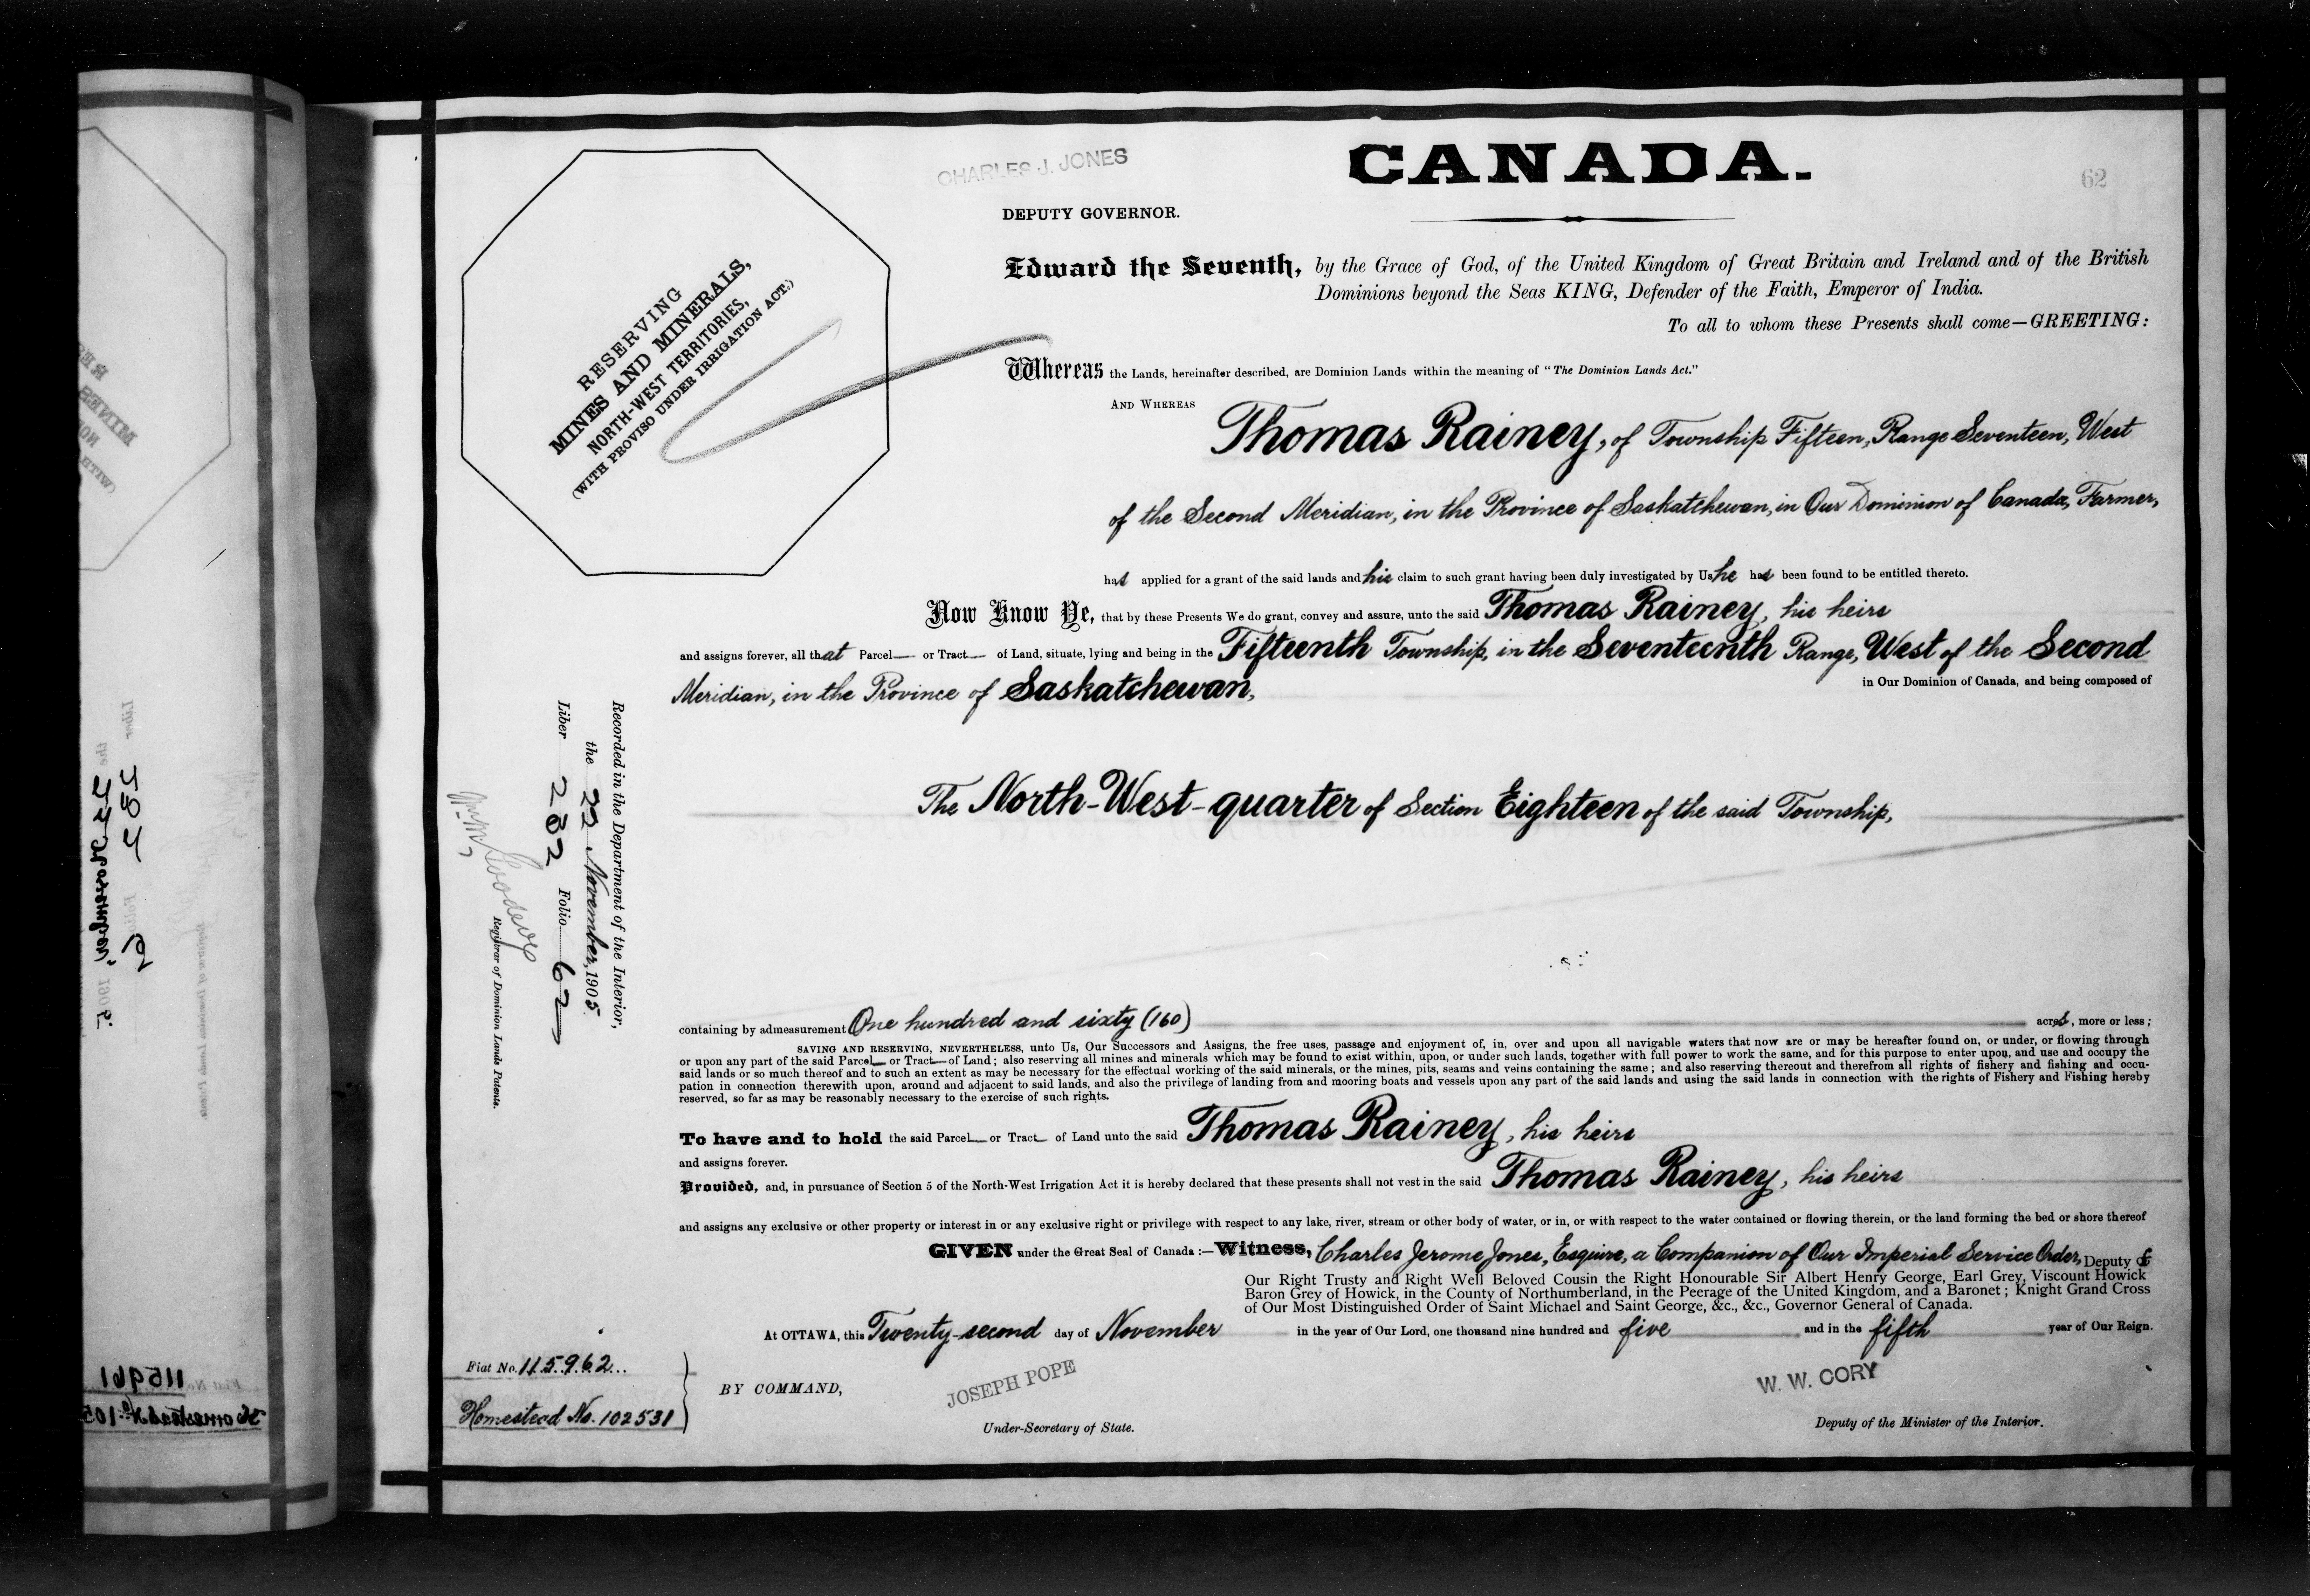 CHARLES J. JONES
CANADA.
62
DEPUTY GOVERNOR.
RESERVING
MINES AND MINERALS,
NORTH-WEST TERRITORIES,
(WITH PROVISO UNDER IRRIGATION ACT.)
Edward the Seventh, by the Grace of God, of the United Kingdom of Great Britain and Ireland and of the British
Dominions beyond the Seas KING, Defender of the Faith, Emperor of India.
To all to whom these Presents shall come—GREETING:
Whereas the Lands, hereinafter described, are Dominion Lands within the meaning of "The Dominion Lands Act."
AND WHEREAS
Thomas Rainey, of Township Fifteen, Range Seventeen, West
of the Second Meridian, in the Province of Saskatchewan, in Our Dominion of Canada, Farmer,
has applied for a grant of the said lands and his claim to such grant having been duly investigated by Us he has been found to be entitled thereto.
Now Know Ye, that by these Presents We do grant, convey and assure, unto the said Thomas Rainey, his heirs
and assigns forever, all that Parcel or Tract of Land, situate, lying and being in the Fifteenth Township, in the Seventeenth Range, West of the Second
Meridian, in the Province of Saskatchewan, in Our Dominion of Canada, and being composed of
The North-West-quarter of Section Eighteen of the said Township,
Recorded in the Department of the Interior,
the 22 November, 1905.
Liber 282 Folio 62
Registrar of Dominion Lands Patents.
containing by admeasurement One hundred and sixty (160) acres, more or less;
SAVING AND RESERVING, NEVERTHELESS, unto Us, Our Successors and Assigns, the free uses, passage and enjoyment of, in, over and upon all navigable waters that now are or may be hereafter found on, or under, or flowing through
or upon any part of the said Parcel or Tract of Land; also reserving all mines and minerals which may be found to exist within, upon, or under such lands, together with full power to work the same, and for this purpose to enter upon, and use and occupy the
said lands or so much thereof and to such an extent as may be necessary for the effectual working of the said minerals, or the mines, pits, seams and veins containing the same; and also reserving thereout and therefrom all rights of fishery and fishing and occu-
pation in connection therewith upon, around and adjacent to said lands, and also the privilege of landing from and mooring boats and vessels upon any part of the said lands and using the said lands in connection with the rights of Fishery and Fishing hereby
reserved, so far as may be reasonably necessary to the exercise of such rights.
To have and to hold the said Parcel or Tract of Land unto the said Thomas Rainey, his heirs
and assigns forever.
Provided, and, in pursuance of Section 5 of the North-West Irrigation Act it is hereby declared that these presents shall not vest in the said Thomas Rainey, his heirs
and assigns any exclusive or other property or interest in or any exclusive right or privilege with respect to any lake, river, stream or other body of water, or in, or with respect to the water contained or flowing therein, or the land forming the bed or shore thereof
GIVEN under the Great Seal of Canada:—Witness, Charles Jerome Jones, Esquire, a Companion of Our Imperial Service Order, Deputy of
Our Right Trusty and Right Well Beloved Cousin the Right Honourable Sir Albert Henry George, Earl Grey, Viscount Howick
Baron Grey of Howick, in the County of Northumberland, in the Peerage of the United Kingdom, and a Baronet; Knight Grand Cross
of Our Most Distinguished Order of Saint Michael and Saint George, &c., &c., Governor General of Canada.
At OTTAWA, this Twenty-second day of November in the year of Our Lord, one thousand nine hundred and five and in the fifth year of Our Reign.
Fiat No. 115962
Homestead No. 102531
BY COMMAND,
JOSEPH POPE
Under-Secretary of State.
W. W. CORY
Deputy of the Minister of the Interior.